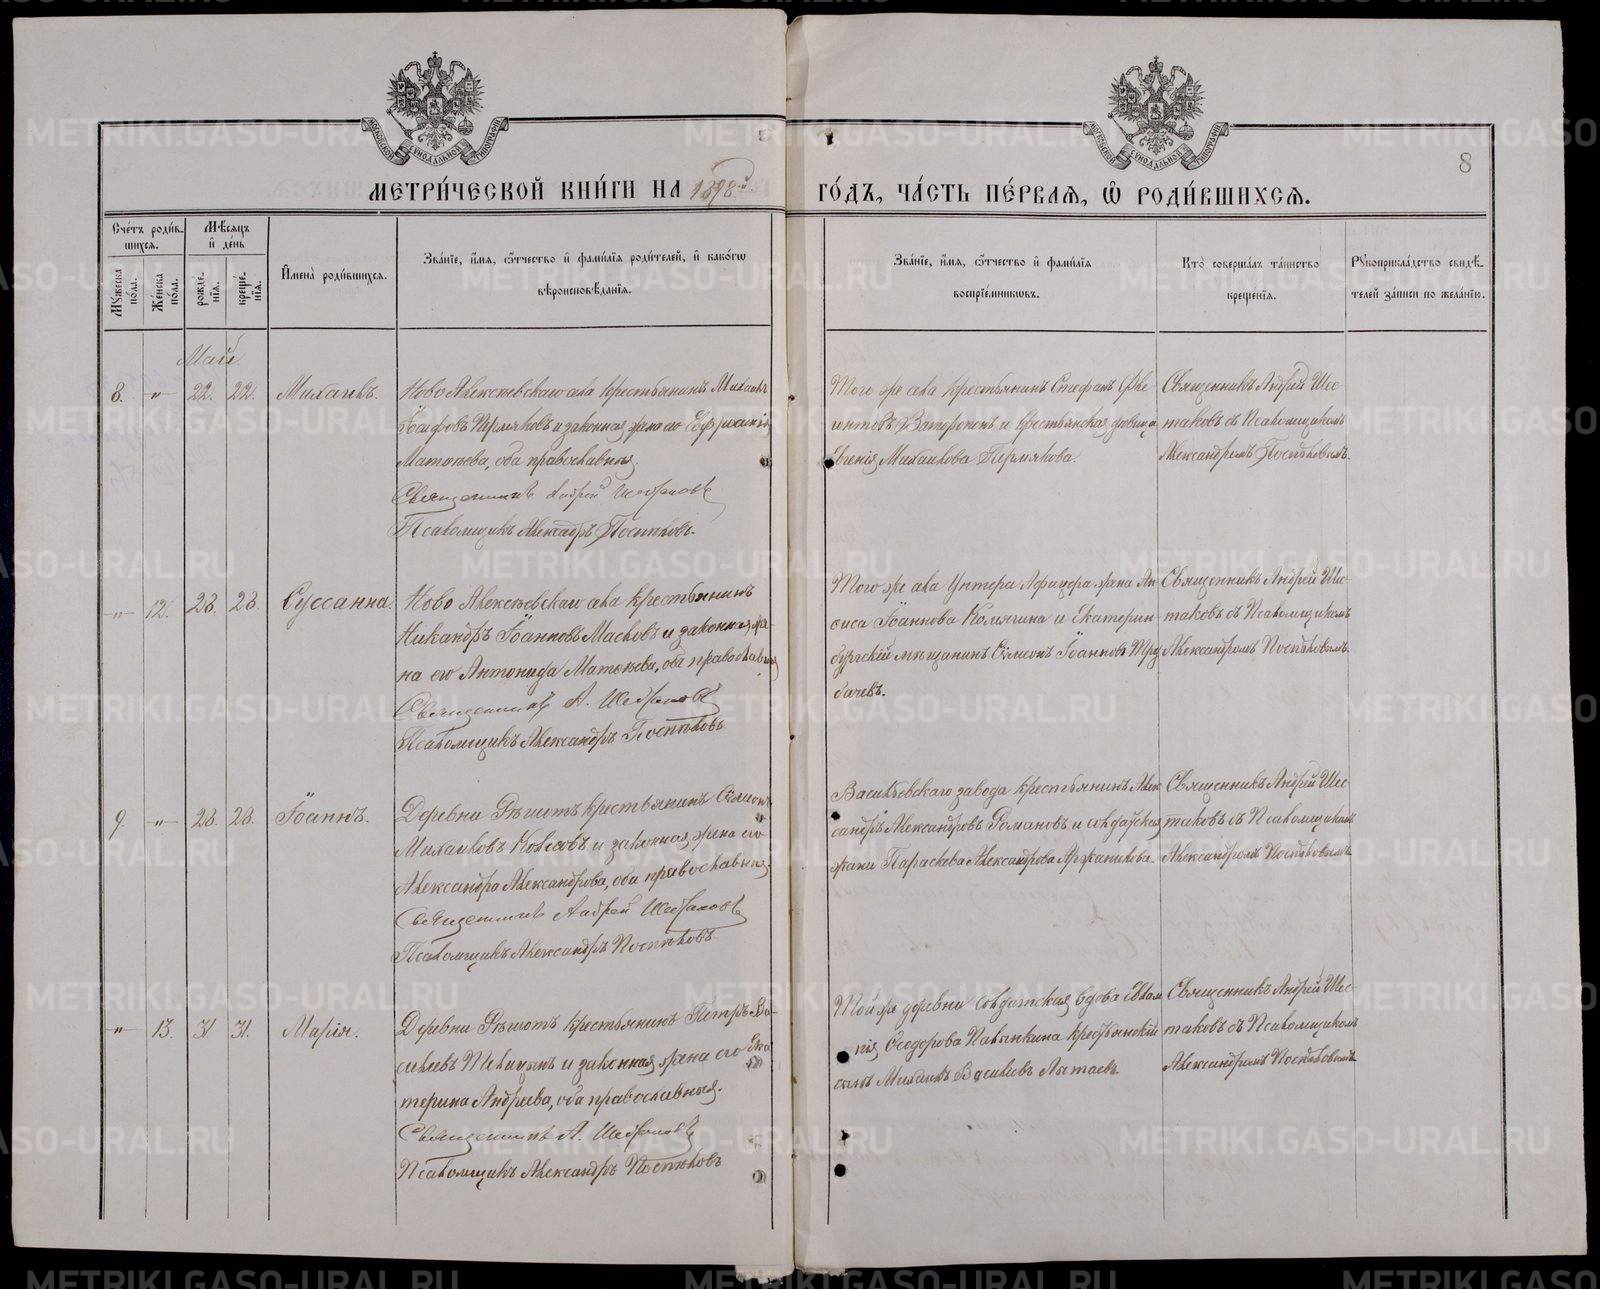 МОСКОВСКОЙ СѴНОДАЛЬНОЙ ТИПОГРАФІИ
МОСКОВСКОЙ СѴНОДАЛЬНОЙ ТИПОГРАФІИ
8
МЕТРИ́ЧЕСКОЙ КНИ́ГИ НА 1898й ГО́ДЪ, ЧА́СТЬ ПЕ́РВАЯ, Ѡ҆ РОДИ́ВШИХСЯ.
Сче́тъ роди́в-
шихся.
Му́жеска по́ла.
Же́нска по́ла.
Мѣ́сяцъ
и҆ де́нь
рожде́-
нїя.
креще́-
нїя.
И҆мена̀ роди́вшихся.
Зва́нїе, и҆́мя, ѻ҆́тчество и҆ фами́лїя роди́телей, и҆ како́гѡ
вѣроисповѣ́данїя.
Зва́нїе, и҆́мя, ѻ҆́тчество и҆ фами́лїя
воспрїе́мниковъ.
Кто̀ соверша́лъ та́инство
креще́нїя.
Рꙋкоприкла́дство свидѣ́-
телей за́писи по жела́нїю.
Май
8. „ 22. 22. Михаилъ.
Ново Алексѣевскаго села крестьянинъ Михаилъ
Пермяковъ и законная жена его
Матвѣева, оба православные.
Священникъ Андрей Шестаковъ
Псаломщикъ Александръ Поспѣловъ.
Того же села крестьянинъ Стефанъ
и крестьянская дѣвица
Евгенія Михаилова Пермякова.
Священникъ Андрей Шес-
таковъ съ Псаломщикомъ
Александромъ Поспѣловымъ.
„ 12. 23. 23. Суссанна.
Ново Алексѣевскаго села крестьянинъ
Никандръ Іоанновъ Масловъ и законная же-
на его Антонида Матвѣева, оба православные
Священникъ А. Шестаковъ
Псаломщикъ Александръ Поспѣловъ.
Того же села Унтеръ Афицера жена Ан
фиса Іоаннова Комягина и Екатерин-
бургскій мѣщанинъ Симеонъ Іоанновъ Тру
бачевъ.
Священникъ Андрей Шес-
таковъ съ Псаломщикомъ
Александромъ Поспѣловымъ.
9. „ 23. 23. Іоаннъ.
Деревни Рѣшотъ крестьянинъ Симеонъ
Михаиловъ и законная жена его
Александра Александрова, оба православные.
Священникъ Андрей Шестаковъ
Псаломщикъ Александръ Поспѣловъ.
Васильевскаго завода крестьянинъ Алек
сандръ Александровъ Романовъ и солдатская
жена Параскева Александрова Аржанникова.
Священникъ Андрей Шес-
таковъ съ Псаломщикомъ
Александромъ Поспѣловымъ
„ 13. 31. 31. Марія.
Деревни Рѣшотъ крестьянинъ Петръ Ва-
сильевъ и законная жена его Ека
терина Андреева, оба православные.
Священникъ А. Шестаковъ
Псаломщикъ Александръ Поспѣловъ
Той же деревни солдатская вдова Евлам
пія Ѳеодорова и крестьянскій
сынъ Михаилъ Васильевъ
Священникъ Андрей Шес-
таковъ съ Псаломщикомъ
Александромъ Поспѣловымъ
METRIKI.GASO-URAL.RU